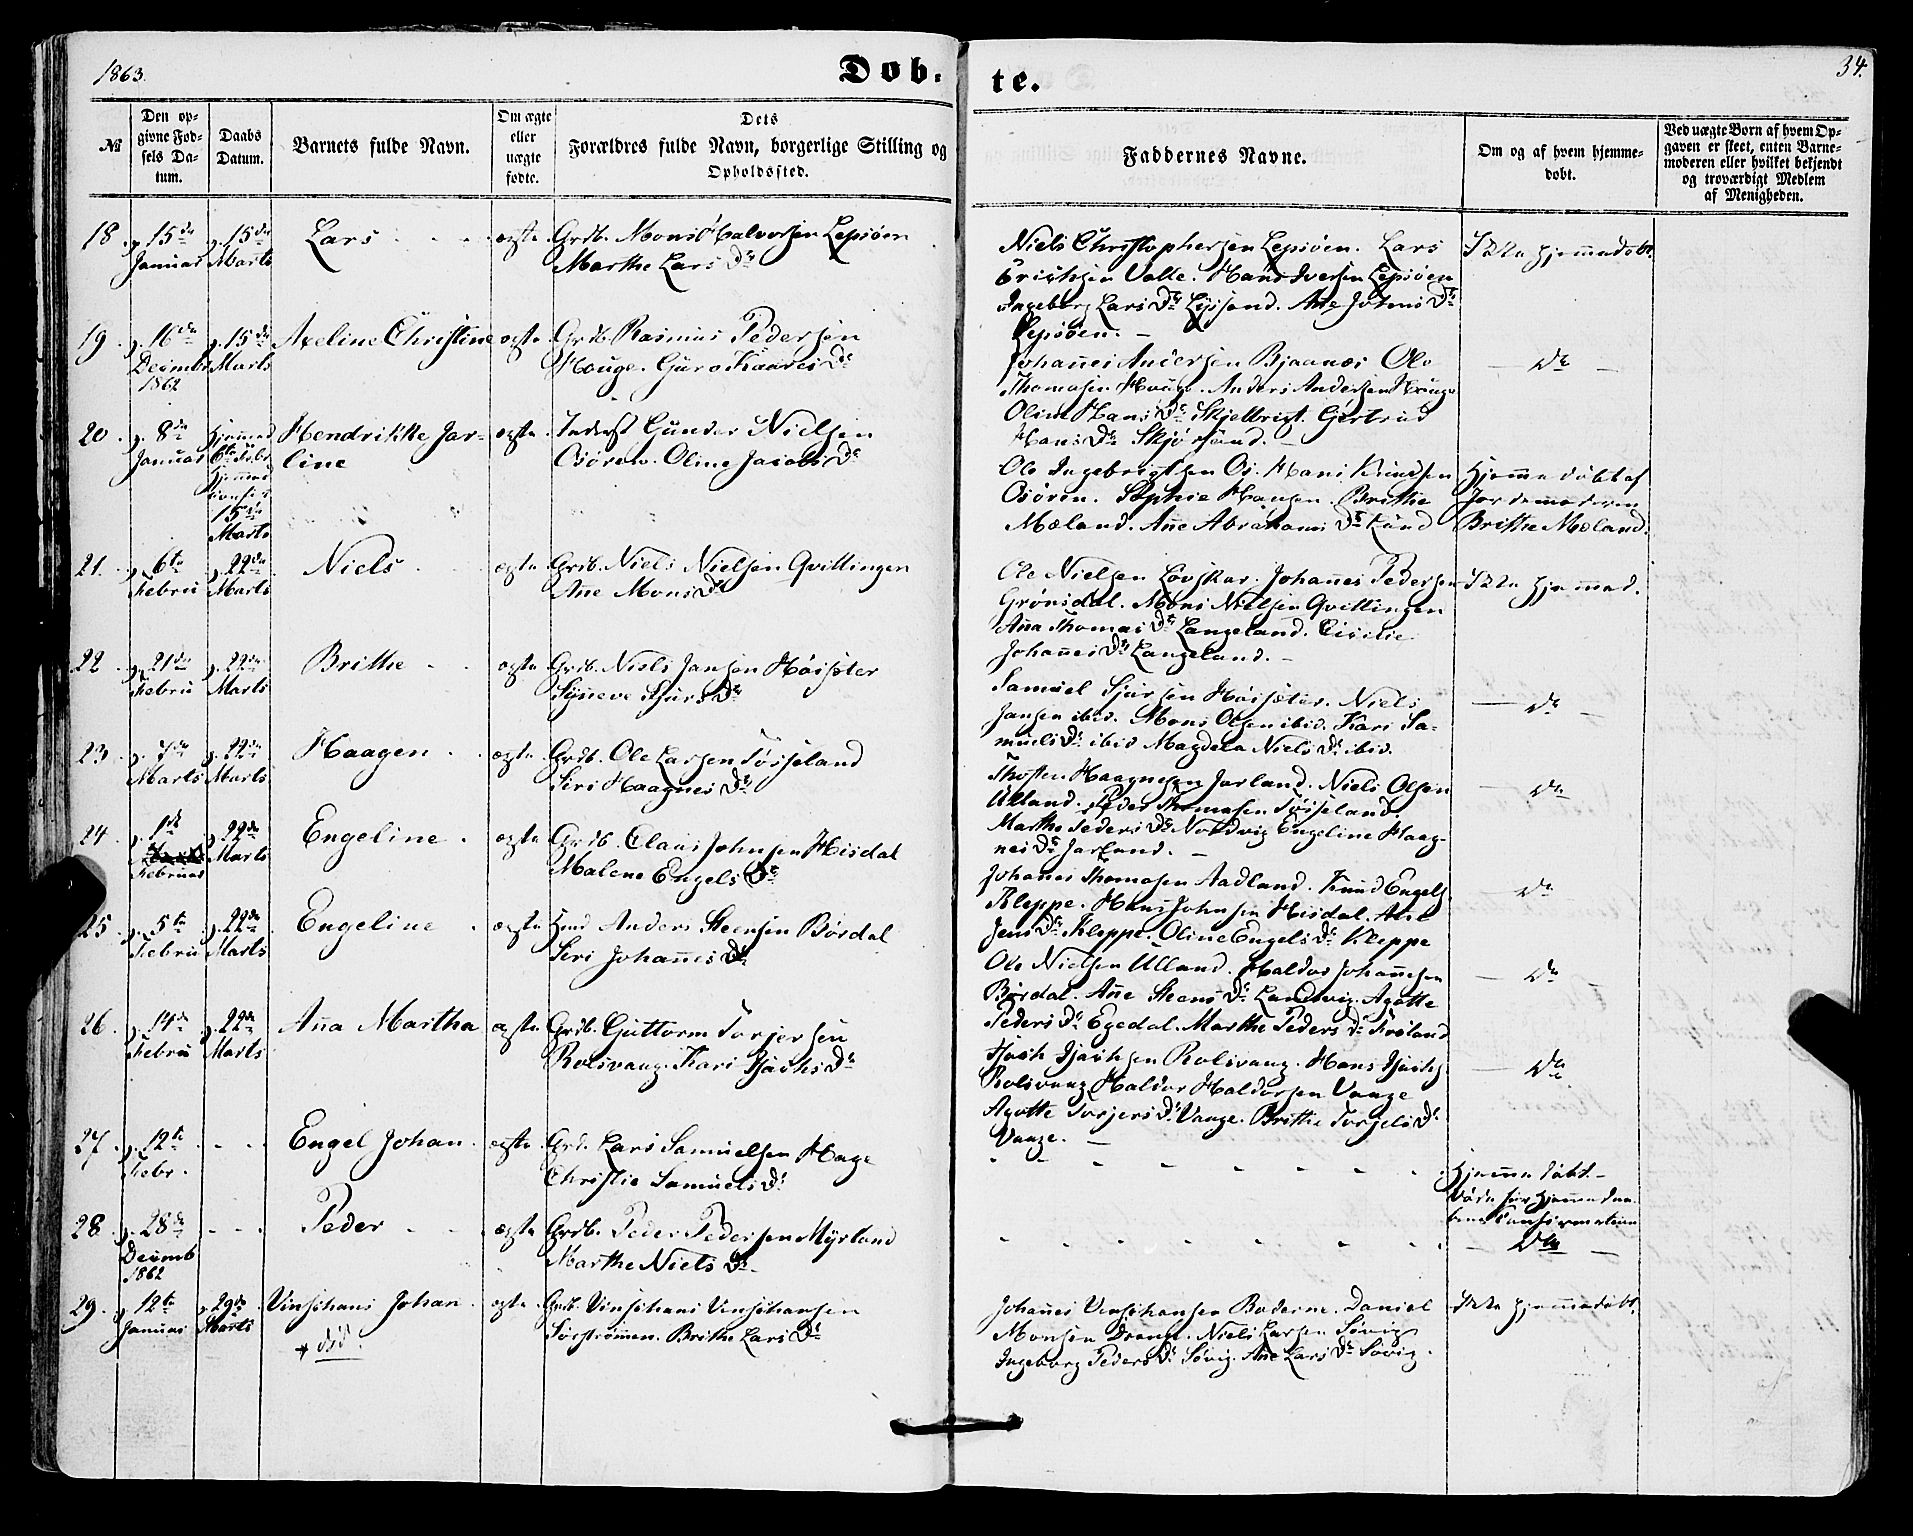 1863.
Dob-
te.
34.
№
Den op-
givne Fød-
sels Da-
tum.
Daabs
Datum.
Barnets fulde Navn.
Om ægte
eller
uægte
fødte.
Dets
Forældres fulde Navn, borgerlige Stilling og
Opholdssted.
Faddernes Navne.
Om og af hvem hjemme-
døbt.
Ved uægte Børn af hvem Op-
gaven er skeet, enten Barne-
moderen eller hvilket bekjendt
og troværdigt Medlem
af Menigheden.
18. d. 15de Januar d. 15de Marts Lars ægte
Grdb. Mons Halvorsen Lepsøen
Marthe Lars Dr
Niels Christophersen Lepsøen. Lars
Valle. Hans Iversen Lepsøen
Ingeborg Lars Dr Lyssand. Ane Dr
Lepsøen.
Ikke hjemmedøbt.
19. d. 16de Decembr 1862 d. 15de Marts Axeline Christine ægte
Grdb. Rasmus Pedersen
Hauge. Guro Dr
Johannes Andersen Bjaanæs Ole
Thomasen Hauge. Anders Andersen Hauge
Oline Hans Dr Skjelbrigt. Gjertrud
Hans Dr Skjørsand.
Do
20. d. 8de Januar 15de Marts Hendrikke Jar-
line ægte
Inderst Gunder Nielsen
Osøren. Oline Jacobs Dr
Ole Ingebrigtsen Os. Hans Knudsen
Osøren. Sophie Hansen. Brithe
Mæland. Ane Abrahams Dr Lund
Hjemmedøbt af
Jordemoderen
Brithe Mæland.
21. d. 6te Febru d. 22de Marts Niels ægte
Grdb. Niels Nielsen Qvittingen
Ane Mons Dr
Ole Nielsen Lovskar. Johannes Pedersen
Grønsdal. Mons Nielsen Qvittingen
Ana Thomas Dr Langeland. Cicilie
Johannes Dr Langeland.
Ikke hjemmed.
22. d. 21de Febru d. 22de Marts Brithe ægte
Grdb. Niels Jansen Høisæter
Synneve Sjurs Dr
Samuel Sjursen Høisæter. Niels
Jansen ibid. Mons Olsen ibid. Kari Sa-
muels Dr ibid Magdela Niels Dr ibid.
Do
23. d. 7de Marts d. 22de Marts Haagen ægte
Grdb. Ole Larsen Tøsseland
Siri Haagnes Dr
Thosten Haagnesen Jarland. Niels Olsen
Ulland. Peder Thomasen Tøsseland.
Marthe Peders Dr Nordvig Engeline Haag-
nes Dr Jarland.
Do
24. d. 1ste Februar d. 22de Marts Engeline ægte
Grdb. Claus Johnsen Hisdal
Malene Engels Dr
Johanes Thomasen Aadland. Knud Engels.
Kleppe. Hans Johnsen Hisdal.
Jens Dr Kleppe. Oline Engels Dr Kleppe
Do
25. d. 5te Febru d. 22de Marts Engeline ægte
Anders Steensen Børdal
Siri Johannes Dr
Ole Nielsen Ulland. Haldor Johannesen
Børdal. Ane Steens Dr Landvig. Agatte
Peders Dr Egedal. Marthe Peders Dr Frøland
Do
26. d. 14de Febru d. 22de Marts Ana Martha ægte
Grdb. Guttorm Torjersen
Rolsvaag. Kari Isachs Dr
Isach Isachsen Rolsvaag. Hans Isachs.
Rolsvaag Haldor Haldorsen Vaage
Agatte Torjers Dr Vaage. Brithe Torgels Dr
Vaage.
Do
27. d. 12te Febr. Engel Johan ægte
Grd. Lars Samuelsen Hage
Christie Samuels Dr
Hjemmedøbt.
28. d. 28de Decemb 1862 Peder ægte
Grdb. Peder Pedersen Myrland
Marthe Niels Dr
Do
29. d. 12te Januar d. 29de Marts Vinsjhans Johan ægte
† død.
Grdb. Vinsjhans Vinsjhansen
Sørstrømmen. Brithe Lars Dr
Johannes Vinsjhansen Boderne. Daniel
Monsen Drange. Niels Larsen Søvig
Ingeborg Peders Dr Søvig. Ane Lars Dr Søvig.
Ikke hjemmedøbt.